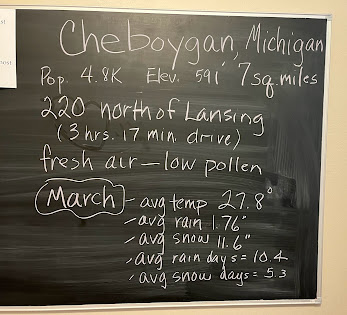 Cheboygan, Michigan
Pop. 4.8K Elev. 591' 7 sq. miles
220 north of Lansing
(3 hrs. 17 min. drive)
fresh air — low pollen
March - avg temp 27.8°
- avg rain 1.76"
- avg snow 11.6"
- avg rain days = 10.4
- avg snow days = 5.3